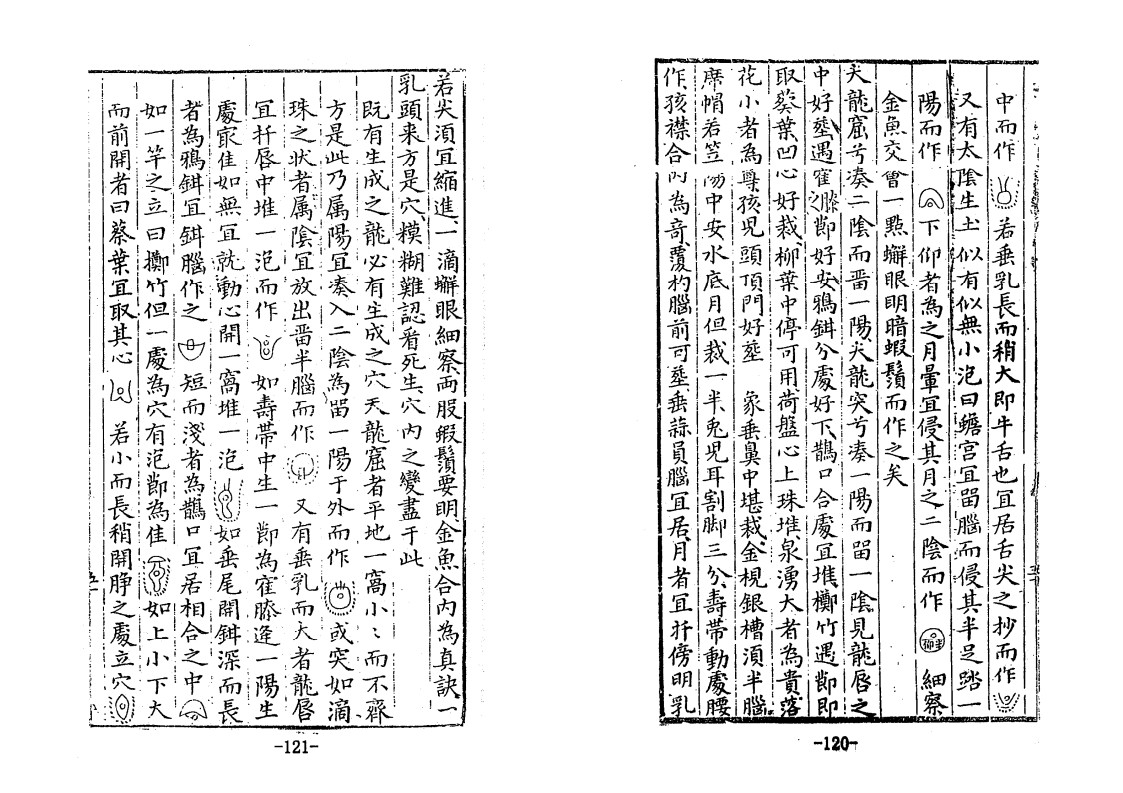 中而作 若垂乳長而稍大即牛舌也宜居舌尖之抄而作
又有太陰生土似有似無小泡曰蟾宮宜畱腦而侵其半足踏一
陽而作 下仰者為之月暈宜侵其月之二陰而作 細察
金魚交會一點蠏眼明暗蝦鬚而作之矣
天龍窟兮湊二陰而畱一陽犬龍突兮湊一陽而畱一陰見龍唇之
中好塟遇窟之膝節好安鴉鉺分處好下鵲口合處宜堆擲竹遇節即
取蔡葉凹心好裁柳葉中停可用荷盤心上珠堆泉湧大者為貴落
花小者為尊孩児頭頂門好塟 象垂鼻中堪裁金梘銀槽湏半腦
蓆帽若笠 中安水底月但裁一半兎児耳割脚三分壽帯動處腰
作孩襟合內為奇覆杓腦前可塟垂蒜員腦宜居月者宜扦傍明乳
-120-
若尖湏宜縮進一滴蠏眼細察両股蝦鬚要明金魚合內為真訣一
乳頭来方是穴糢糊難認看死生穴內之變盡于此
既有生成之龍必有生成之穴天龍窟者平地一窩小〻而不齊
方是此乃属陽宜湊入二陰為畱一陽于外而作 或突如滴
珠之状者属陰宜放出畱半腦而作 又有垂乳而大者龍唇
宜扦唇中堆一泡而作 如壽帯中生一節為寉膝逢一陽生
處㝡佳如無宜就動心開一窩堆一泡 如垂尾開鉺深而長
者為鴉鉺宜鉺腦作之 短而淺者為鵲口宜居相合之中
如一竿之立曰擲竹但一處為穴有泡節為佳 如上小下大
而前開者曰蔡葉宜取其心 若小而長稍開脖之處立穴
-121-